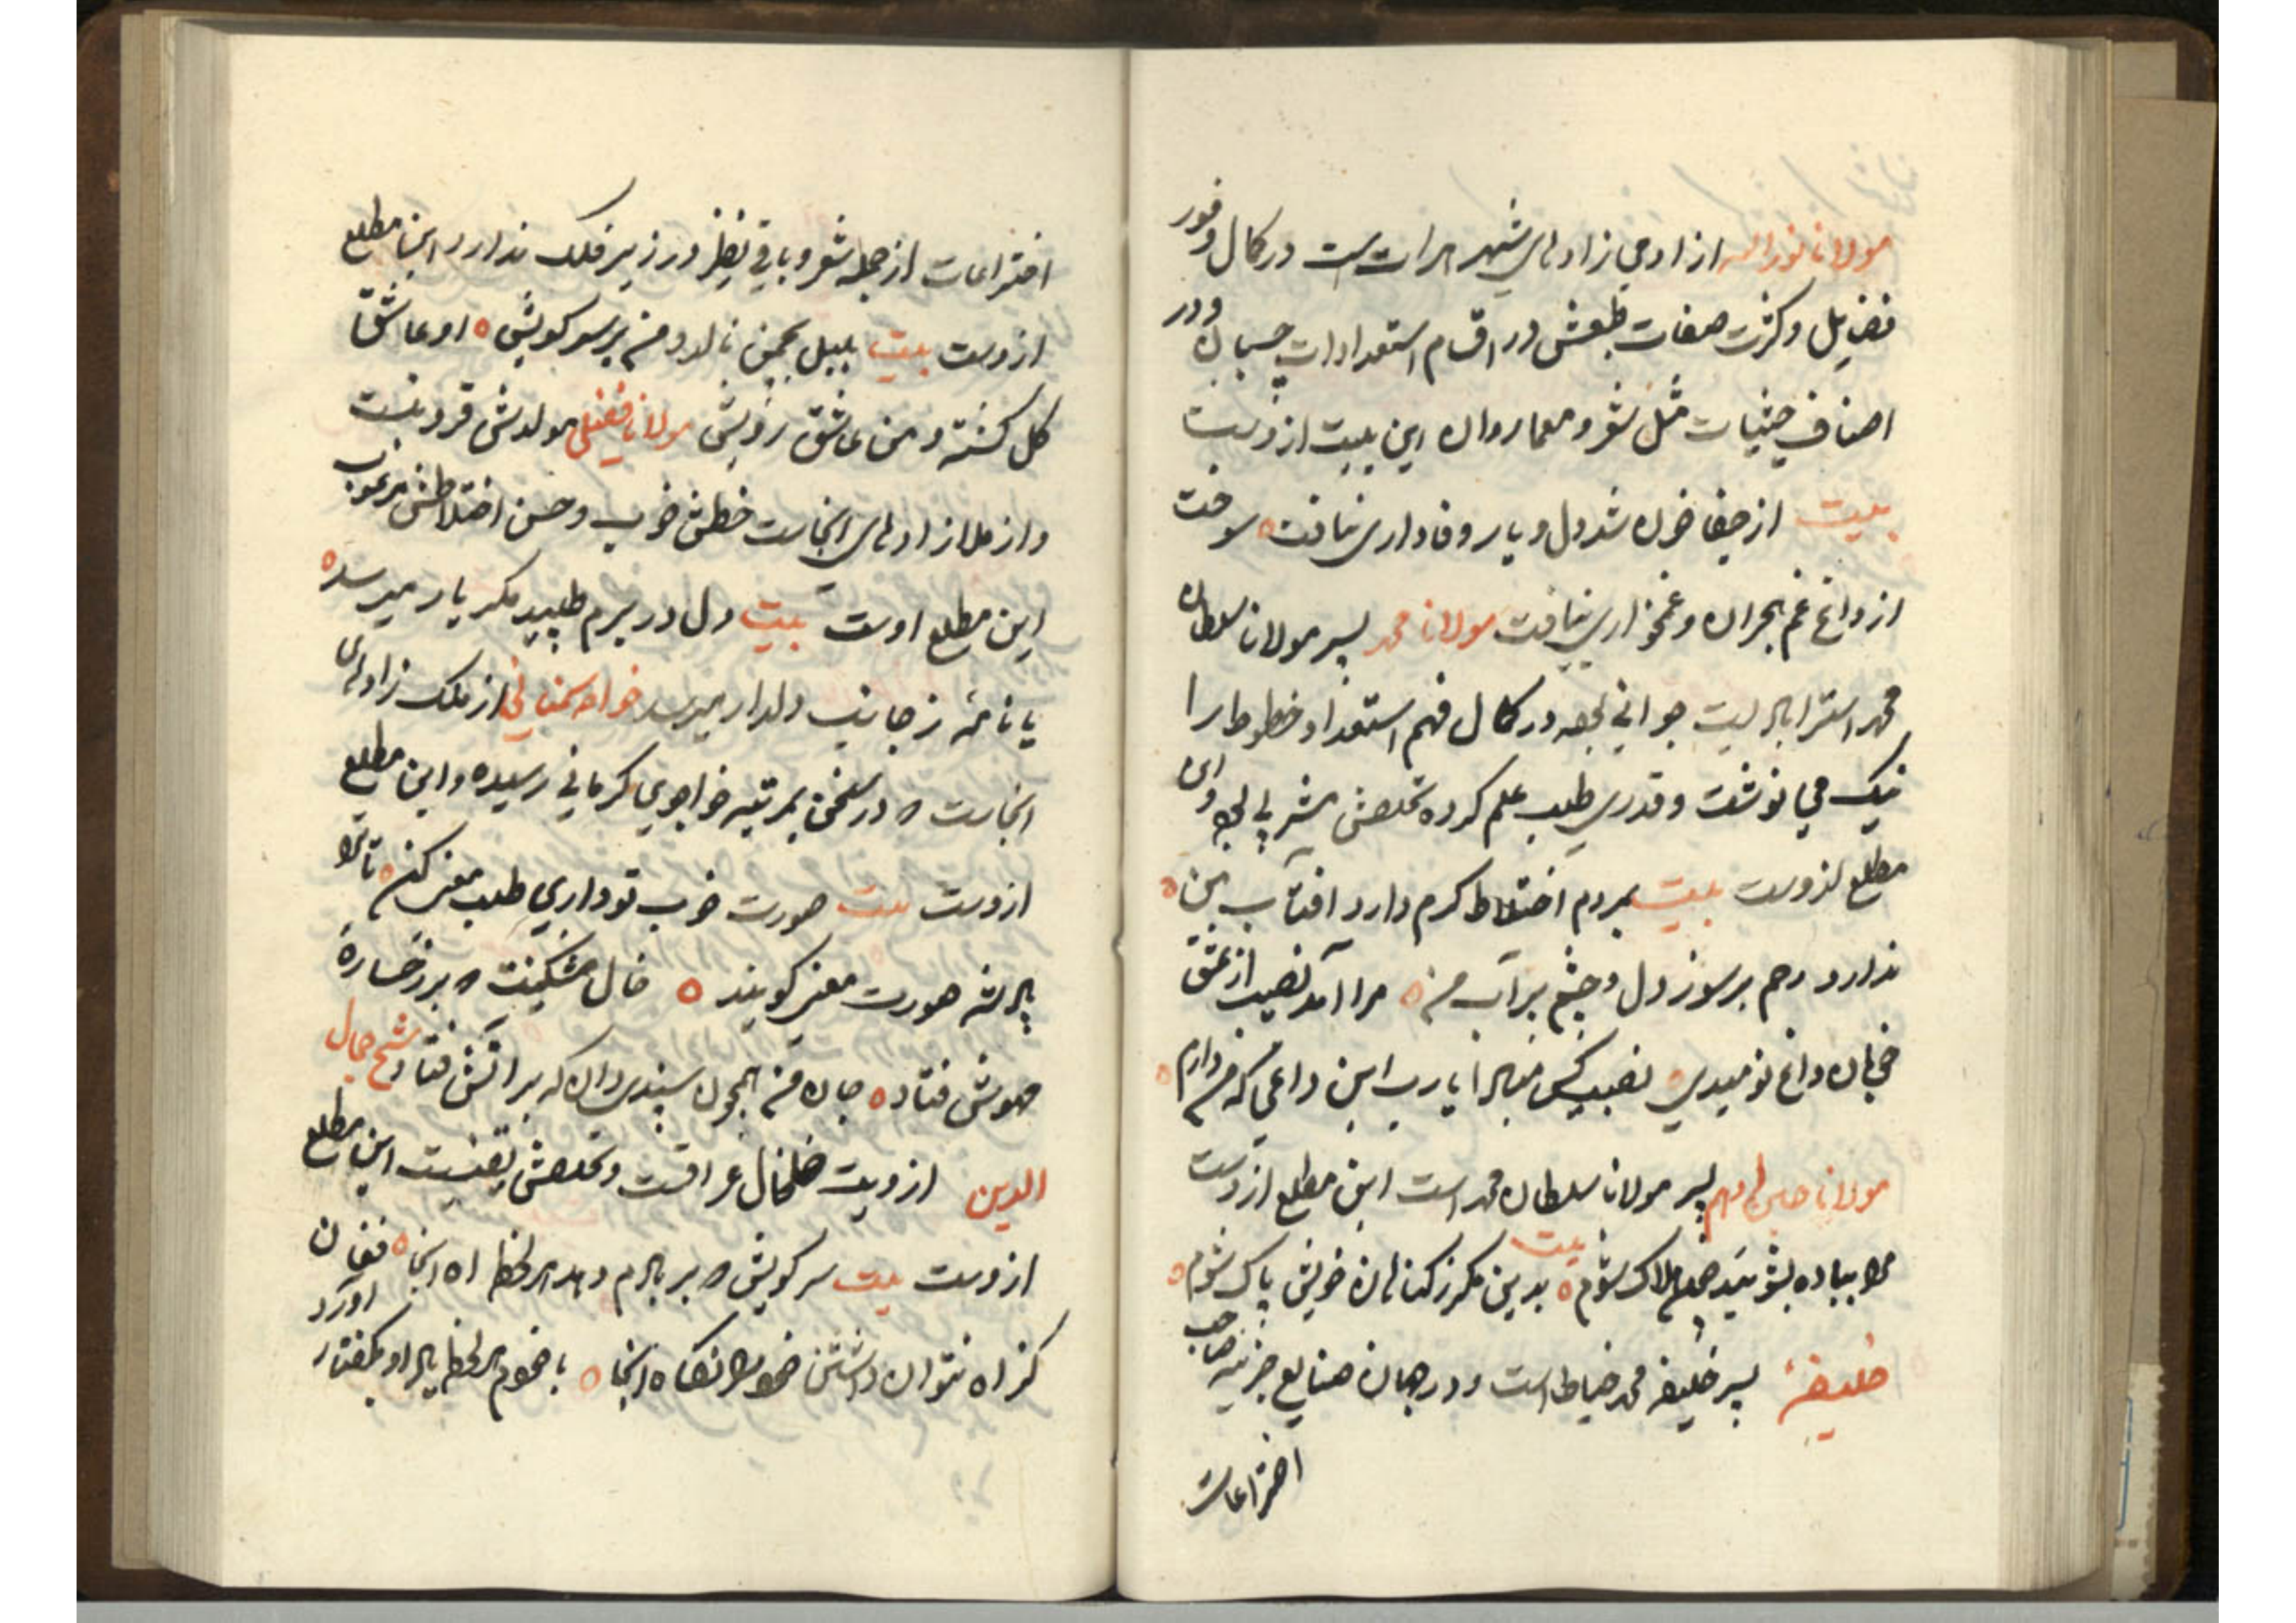 مولانا نورالله از ادمی زادهای شهر هرات است در کمال وفور
فضایل و کثرت صفات طبعش در اقسام استعدادات چسبان و در
اصناف حیثیات مثل شعر و معما روان این بیت ازوست
بیت از جفا خون شد دل و یار وفاداری نیافت سوخت
از داغ غم هجران و غمخواری نیافت مولانا محمد پسر مولانا سلطان
محمد استرابادیست جوانی بوده در کمال فهم استعداد و خطوط را
نیک می نوشت و قدری طلب علم کرده تخلصش مشربی بوده و این
مطلع ازوست بیت بمردم اختلاط کرم دارد افتاب من
ندارد رحم بر سوز دل و چشم بر آب من مرا آمد نصیب از عشق
خوبان داغ نومیدی نصیب کس مبادا یارب این داغی که من دارم
مولانا پسر مولانا سلطان محمد است این مطلع ازوست
بیت
مرا بباده بشوئید چون هلاک شوم بدین مکرز کناهان خویش پاک شوم
خلیفه پسر خلیفه محمد خیاط است و در همان صنایع جزئیه صاحب
اختراعات
اختراعات از جمله شعر و باقی نظیر در زیر فلک ندارد این مطلع
ازوست بیت بلبل بچمن نالد و من بر سر کویش او عاشق
کل کشته و من عاشق رویش مولانا فضلی مولدش قزوینست
و از ملازادهای انجاست خطش خوب و حسن اختلاطش مرغوب
این مطلع اوست بیت دل در برم طپید مکر یار میرسد
یا نامه ز جانب دلدار میرسد خواجه از ملک زادهای
انجاست در سخن بمرتبه خواجوی کرمانی رسیده و این مطلع
ازوست بیت صورت خوب تو داری طلب معنی کن تا ترا
پادشه صورت معنی کویند خال مشکینت بر رخسارهٔ
مهوش فتاد جان من همچون سپندی دان که بر اتش فتاد شیخ جمال
الدین از ولایت خلخال عراقست و تخلصش یقینیست این مطلع
ازوست بیت سر کویش بر بادم دهد هر لحظه اه انجا فغان
کز اه نتوان داشتن خود را نکاه انجا با خودم هر لحظه یاد او بکفتار
اورد